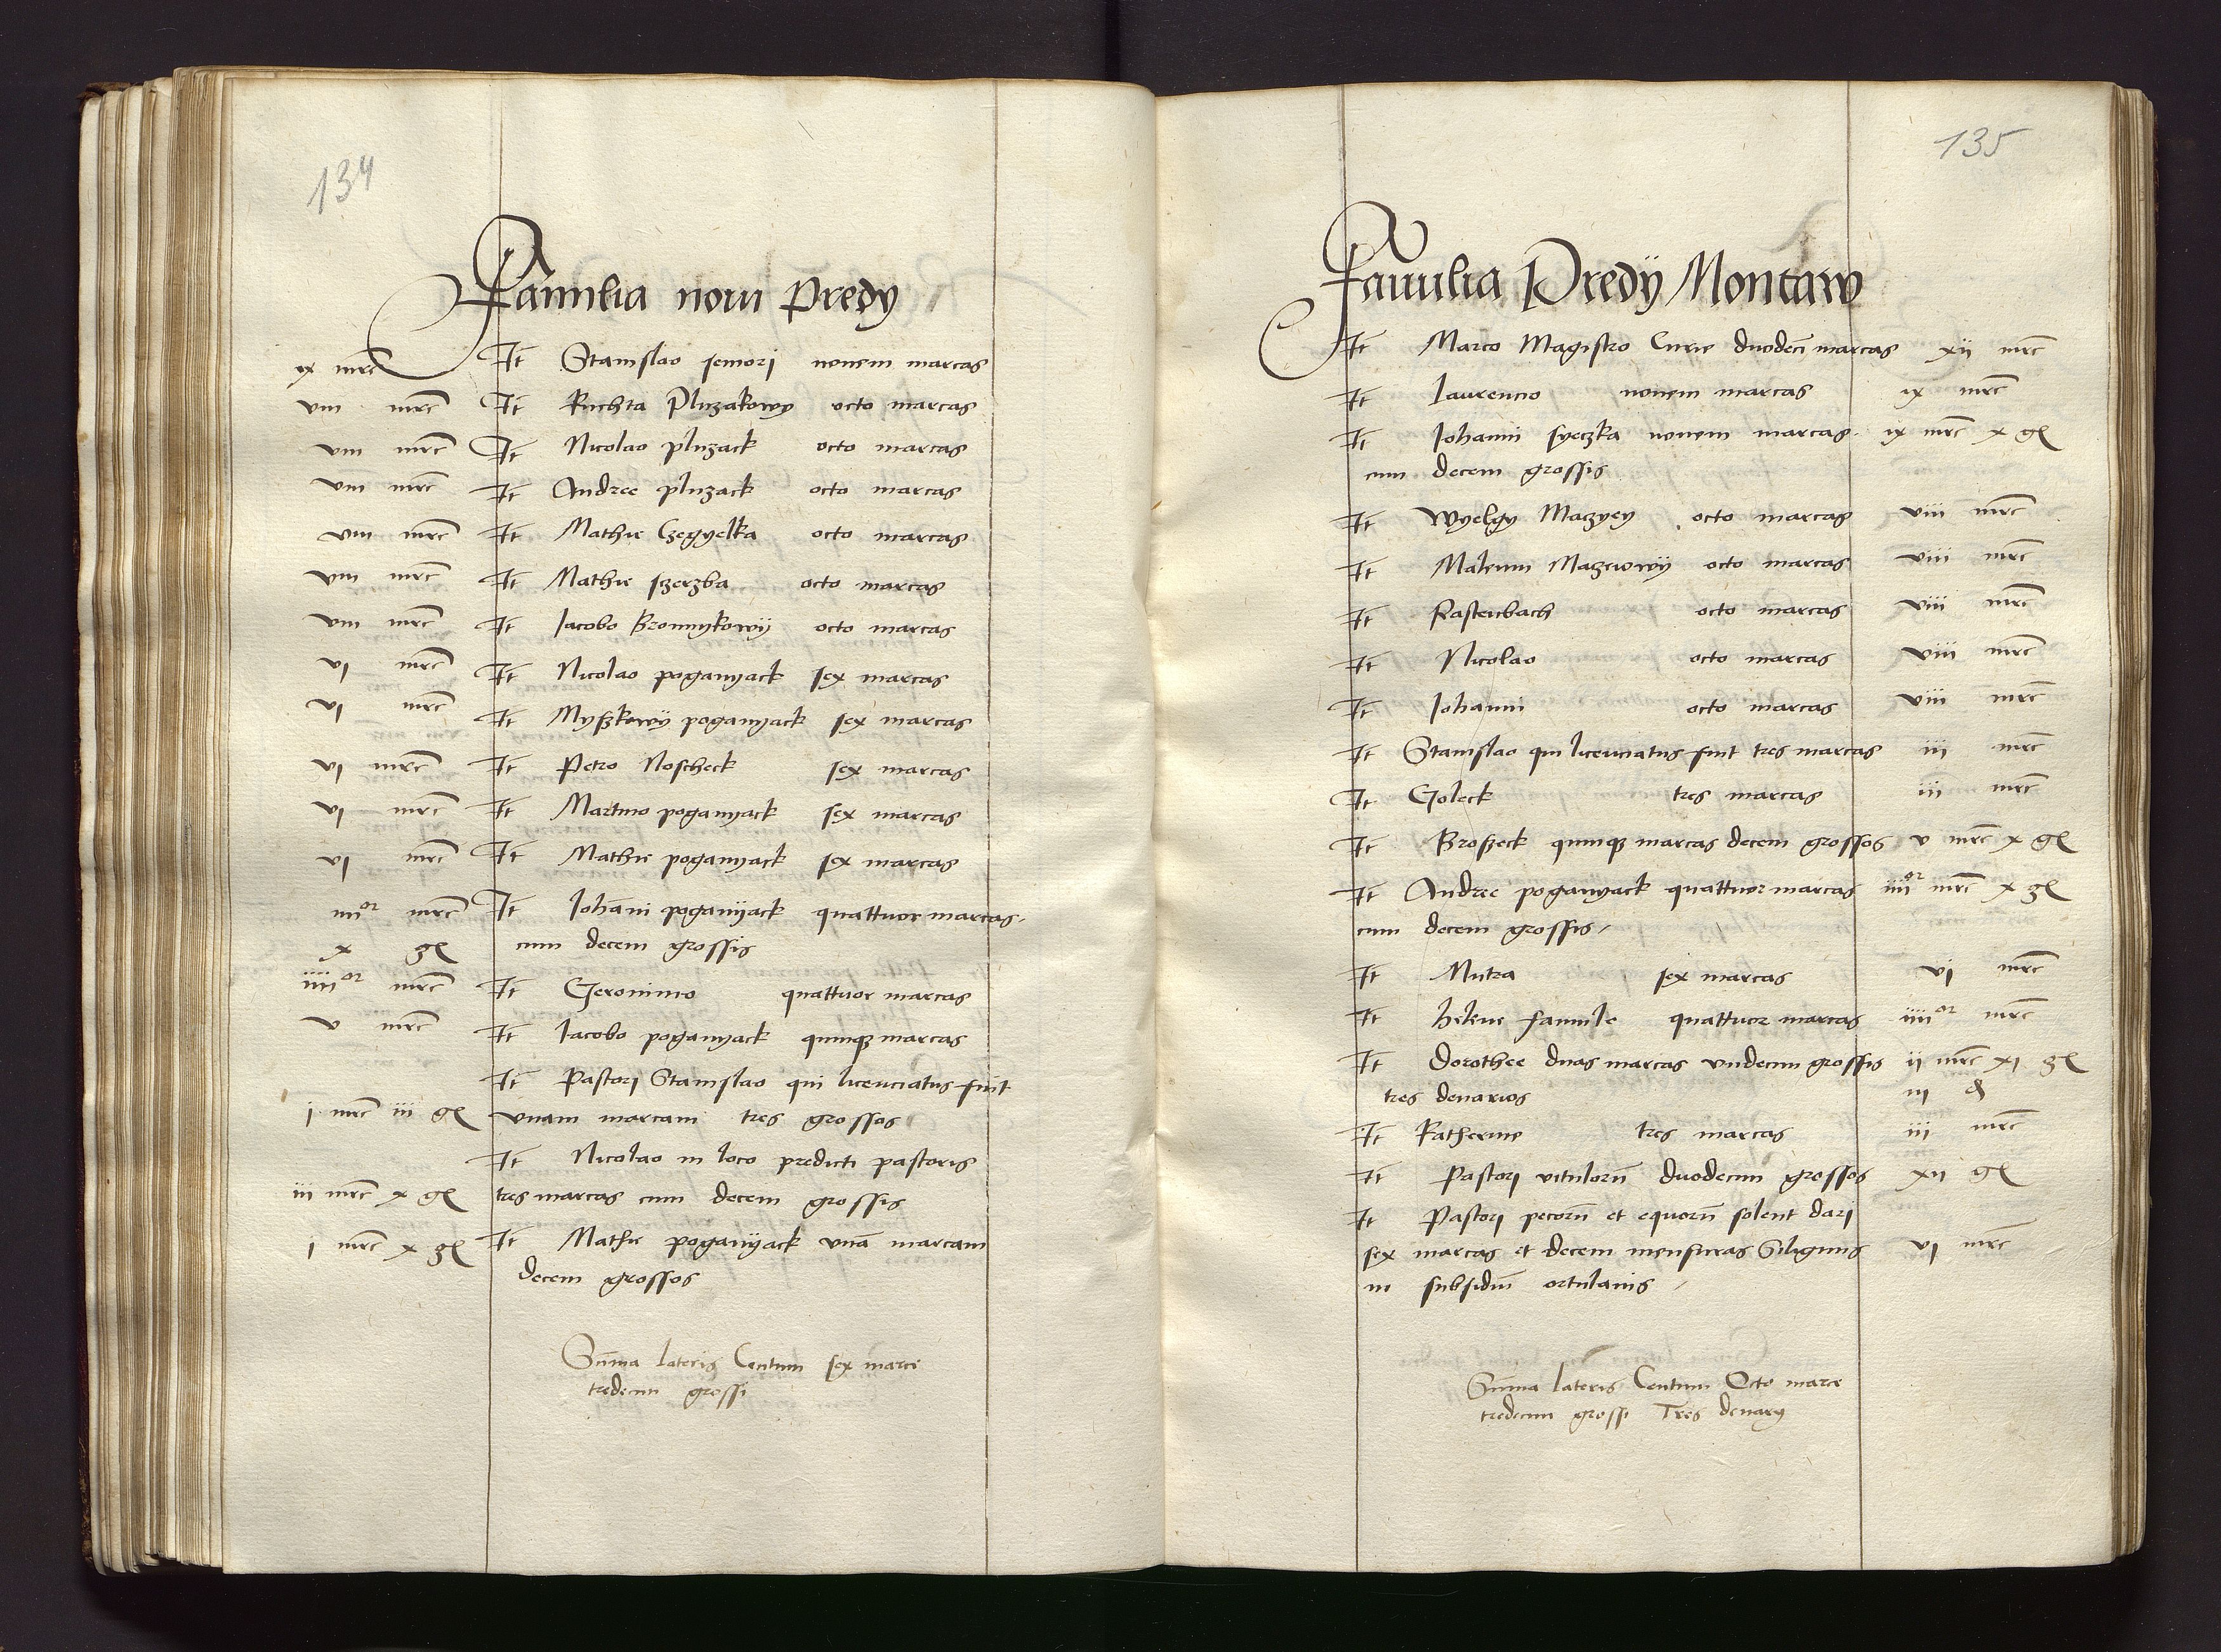 134
Familia noui Predy
ix mrc It Stanislao seniori nouem marcas
viii mrc It Ruchta Pluzakowy octo marcas
viii mrc It Nicolao pluzack octo marcas
viii mrc It Andree pluzack octo marcas
viii mrc It Mathie Czegyelka octo marcas
viii mrc It Mathie sczerzba octo marcas
viii mrc It Iacobo Bronnykowÿ octo marcas
vi mrc It Nicolao poganyack sex marcas
vi mrc It Myszkowÿ poganyack sex marcas
vi mrc It Petro Noscheck sex marcas
vi mrc It Martino poganyack sex marcas
vi mrc It Mathie poganyack sex marcas
iiii or mrc It Iohāni poganÿack quattuor marcas
x gl cum decem grossis
iiii or mrc It Geronimo quattuor marcas
v mrc It Iacobo poganyack quinqz marcas
It Pastori Stanislao qui licenciatus fuit
i mrc iii gl vnam marcam tres grossos
It Nicolao in loco predicti pastoris
iii mrc x gl tres marcas cum decem grossis
i mrc x gl It Mathie poganÿack vnā marcam
decem grossos
Sūma lateris Centum sex marce
tredecim grossi
135
Familia Predÿ Montaw
It Marco Magistro Curie duodecī marcas xii mrc
It Laurencio nouem marcas ix mrc
It Iohanni syeczka nouem marcas ix mrc x gl
cum decem grossis
It Wyelgy Maczyey octo marcas viii mrc
It Maleum Maczeiowÿ octo marcas viii mrc
It Rastenbach octo marcas viii mrc
It Nicolao octo marcas viii mrc
It Iohanni octo marcas viii mrc
It Stanislao qui licenciatus fuit tres marcas iii mrc
It Goleck tres marcas iii mrc
It Broszeck quinqz marcas decem grossos v mrc x gl
It Andree poganyack quattuor marcas iiii or mrc x gl
cum decem grossis
It Mutra sex marcas vi mrc
It helene famule quattuor marcas iiii or mrc
It Dorothee duas marcas vndecim grossis ii mrc xi gl
tres denarios iii d
It Katherine tres marcas iii mrc
It Pastori vitulorū duodecim grossos xii gl
It Pastori pecorū et equorū solent dari
sex marcas et decem mensuras Siliginis vi mrc
in subsidiū ortulanis
Sūma lateris Centum Octo marce
tredecim grossi Tres denary